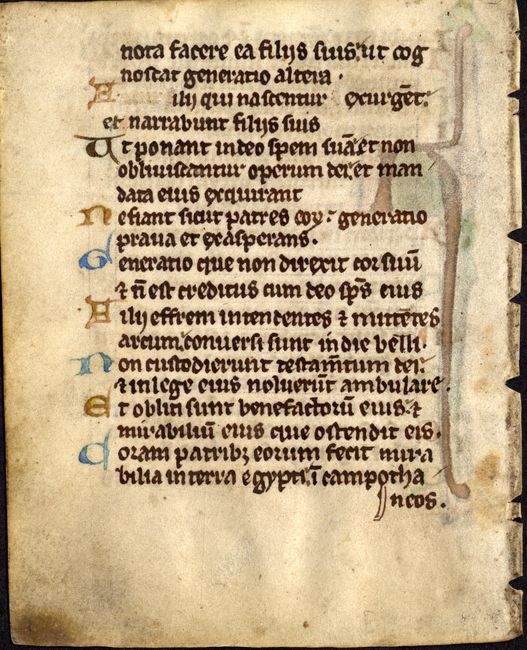 nota facere ea filijs suis: ut cog
noscat generatio altera ·
Filij qui nascentur exurgēt:
et narrabunt filijs suis
Ut ponant in deo spem suā: et non
obliviscantur operum dei: et man
data eius exquirant
Ne fiant sicut patres eoꝝ: generatio
praua et exasperans ·
Generatio que non direxit cor suū
⁊ nō est creditus cum deo sp̄s eius
Filij effrem intendentes ⁊ mittētes
arcum, conuersi sunt in die belli ·
Non custodierunt testam̄tum dei:
⁊ in lege eius noluerūt ambulare ·
Et obliti sunt benefactorū eius: ⁊
mirabiliū eius que ostendit eis ·
Coram patribꝫ eorum fecit mira
bilia in terra egypti: ī campo tha
neos ·